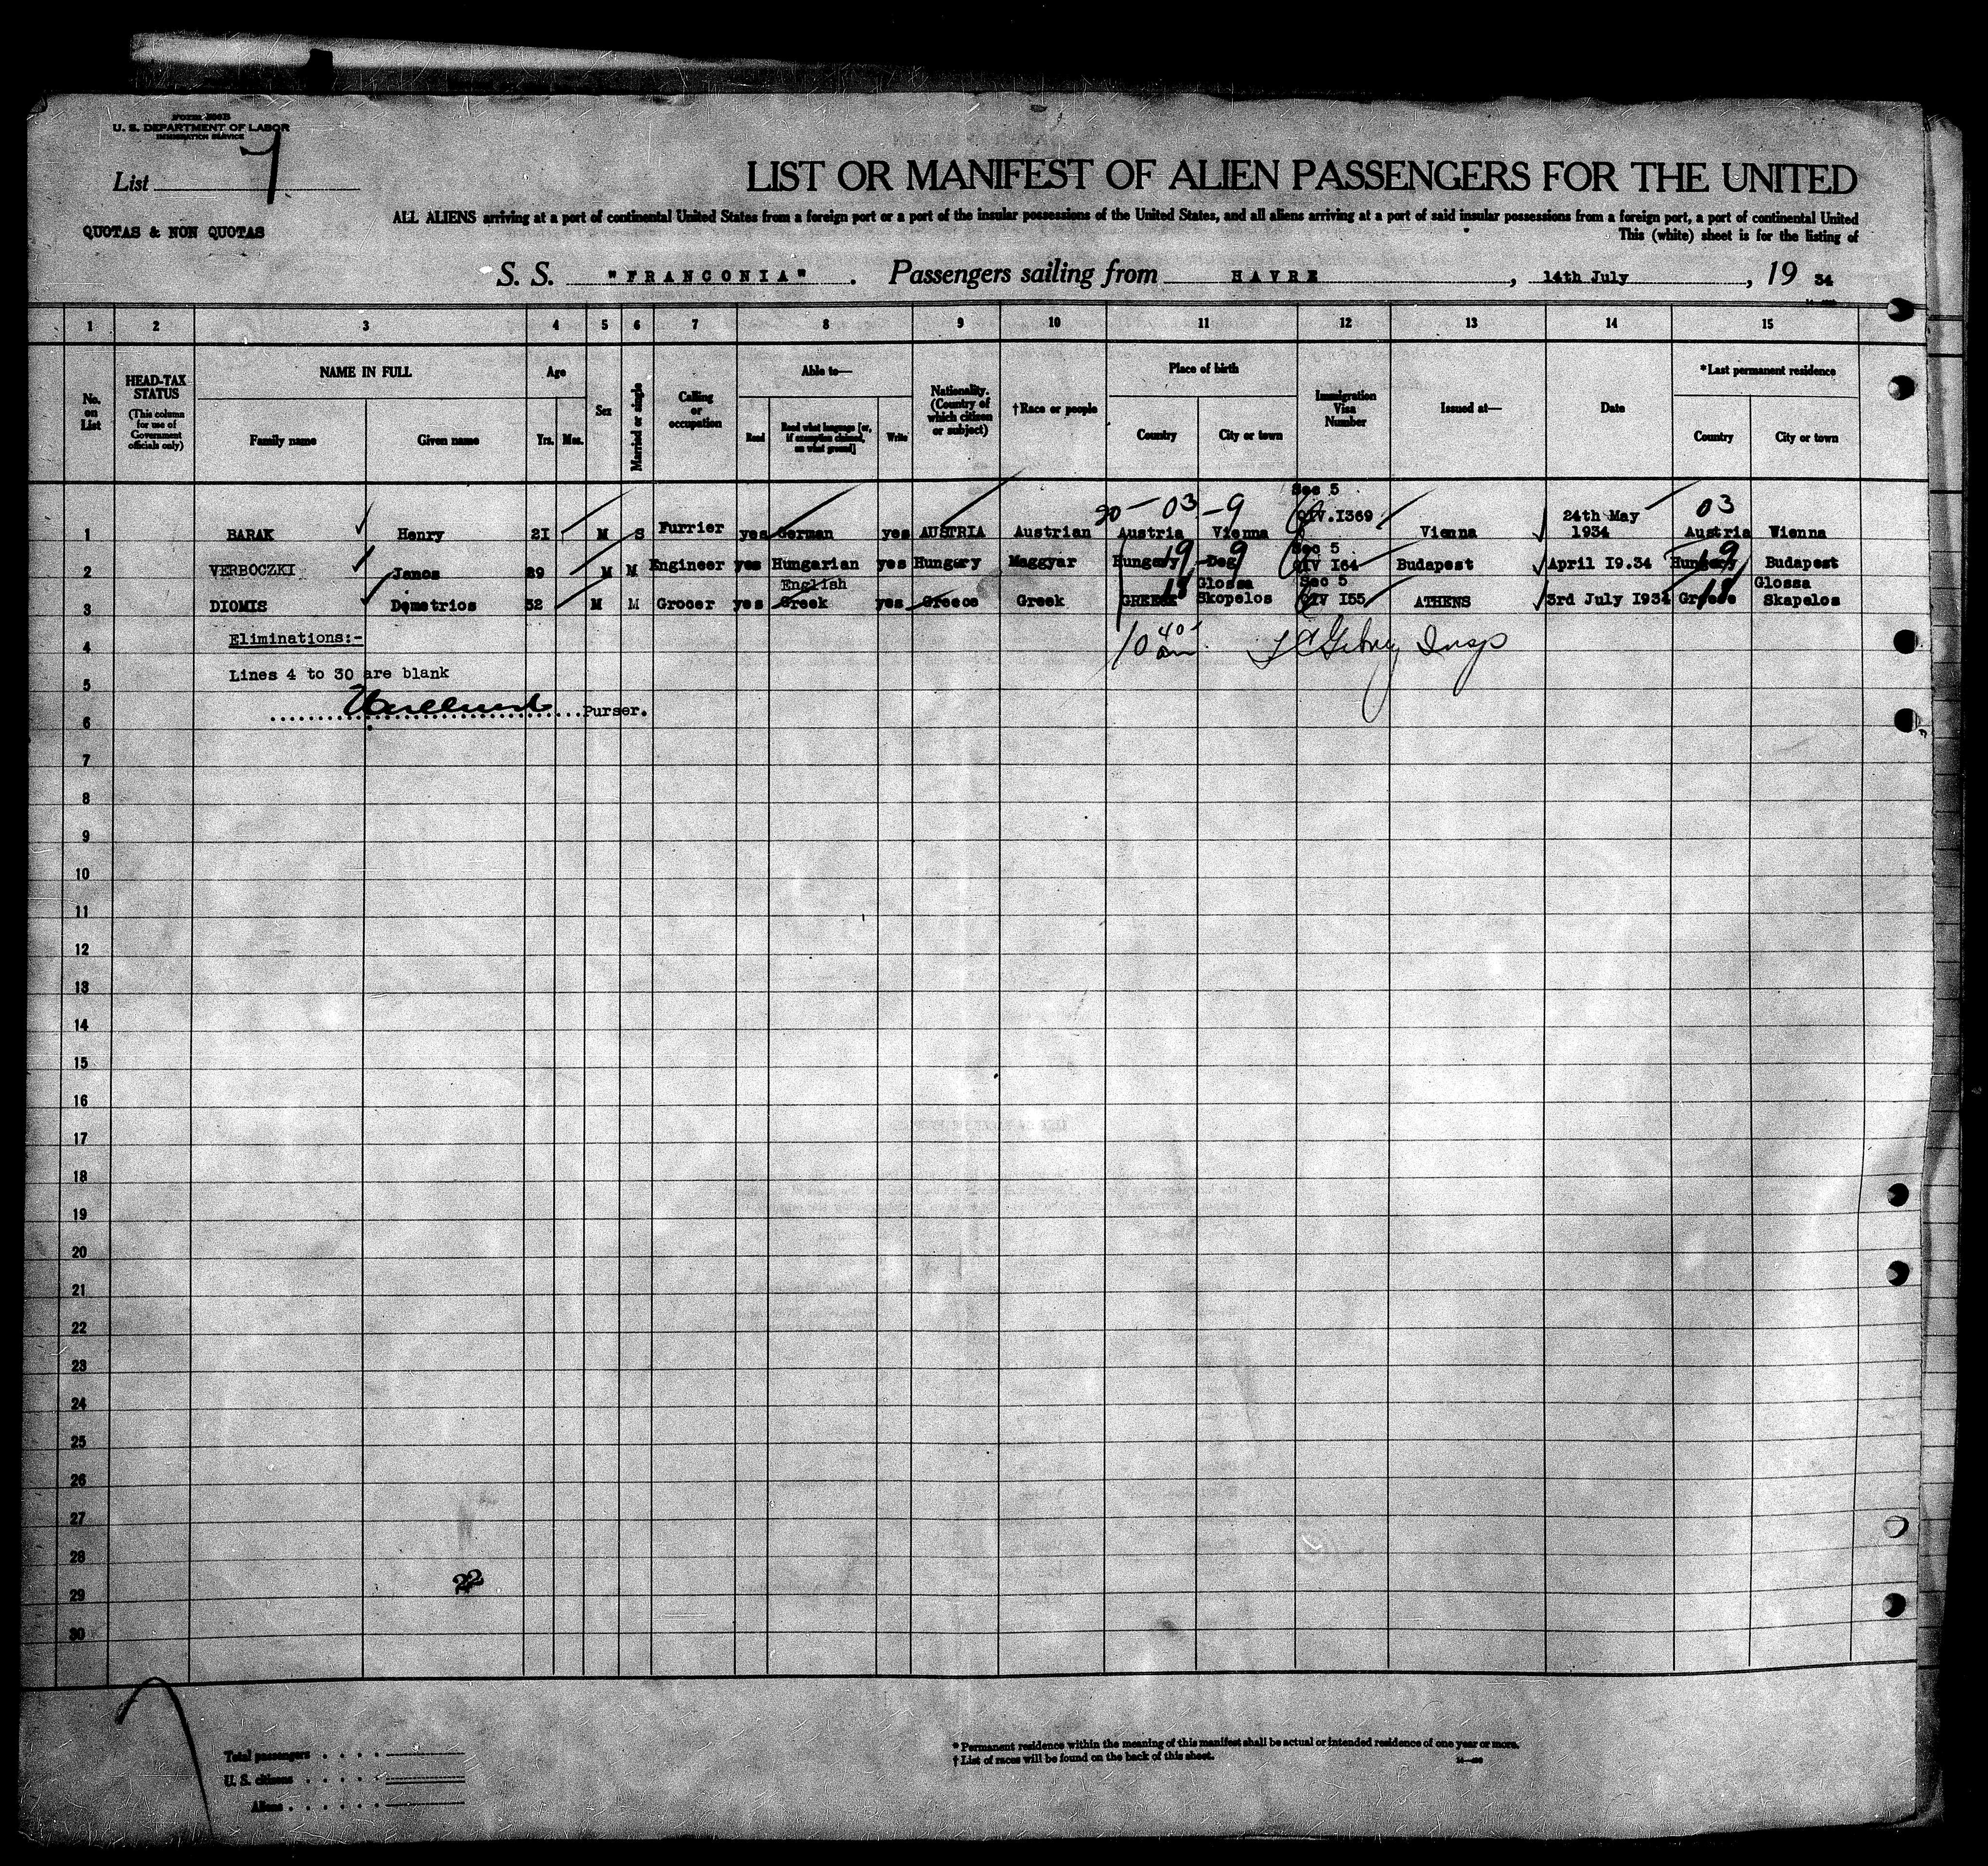 FORM 500B
U. S. DEPARTMENT OF LABOR
IMMIGRATION SERVICE
List 7
LIST OR MANIFEST OF ALIEN PASSENGERS FOR THE UNITED
QUOTAS & NON QUOTAS
ALL ALIENS arriving at a port of continental United States from a foreign port or a port of the insular possessions of the United States, and all aliens arriving at a port of said insular possessions from a foreign port, a port of continental United
This (white) sheet is for the listing of
S. S. "FRANCONIA". Passengers sailing from HAVRE, 14th July, 19 34
1 2 3 4 5 6 7 8 9 10 11 12 13 14 15
No. on List
HEAD-TAX STATUS (This column for use of Government officials only)
NAME IN FULL Family name Given name
Age Yrs. Mos.
Sex
Married or single
Calling or occupation
Able to— Read Read what language [or, if exemption claimed, on what ground] Write
Nationality. (Country of which citizen or subject)
†Race or people
Place of birth Country City or town
Immigration Visa Number
Issued at—
Date
*Last permanent residence Country City or town
20 — 03 — 9 Sec 5 03
1 BARAK Henry 21 M S Furrier yes German yes AUSTRIA Austrian Austria Vienna QIV.I369 Vienna 24th May 1934 Austria Wienna
19 9 Sec 5 19
2 VERBOCZKI Janos 29 M M Engineer yes Hungarian yes Hungary Maggyar Hungary Deg QIV I64 Budapest April I9.34 Hungary Budapest
English 18 Glossa Sec 5 18 Glossa
3 DIOMIS Demetrios 32 M M Grocer yes Greek yes Greece Greek GREECE Skopelos QIV I55 ATHENS 3rd July I934 Greece Skapelos
4 Eliminations:- 10 40 am Insp
5 Lines 4 to 30 are blank
6 Purser.
7
8
9
10
11
12
13
14
15
16
17
18
19
20
21
22
23
24
25
26
27
28
22
29
30
Total passengers
U. S. citizens
Aliens
* Permanent residence within the meaning of this manifest shall be actual or intended residence of one year or more.
† List of races will be found on the back of this sheet.